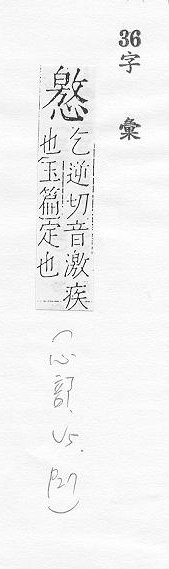 36
字彙
乞逆切音激疾
也玉篇定也
(心部, V5, P27)